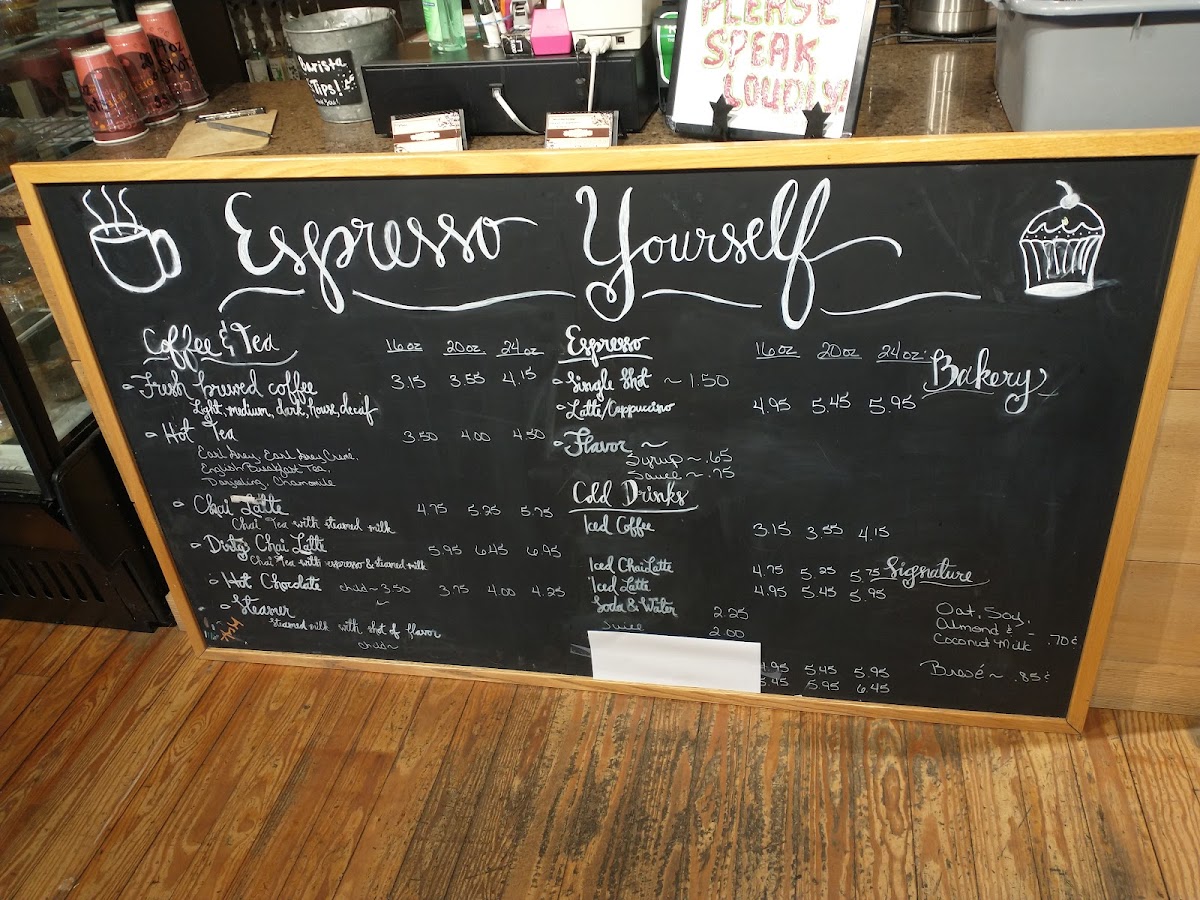 Barista
Tips!
PLEASE
SPEAK
LOUDLY
Espresso Yourself
Coffee & Tea
16oz 20oz 24oz
Fresh brewed coffee 3.15 3.55 4.15
Light, medium, dark, house, decaf
Hot Tea 3.50 4.00 4.50
Earl Grey, Earl Grey Creme,
English Breakfast Tea,
Darjeeling, Chamomile
Chai Latte 4.75 5.25 5.75
Chai Tea with steamed milk
Dirty Chai Latte 5.95 6.45 6.95
Chai Tea with espresso & steamed milk
Hot Chocolate child~3.50 3.75 4.00 4.25
Steamer
steamed milk with shot of flavor
child~
Espresso
16oz 20oz 24oz
Single Shot ~ 1.50
Latte/Cappuccino 4.95 5.45 5.95
Flavor ~
Syrup ~ .65
Sauce ~ .75
Cold Drinks
Iced Coffee 3.15 3.55 4.15
Iced Chai Latte 4.75 5.25 5.75
Iced Latte 4.95 5.45 5.95
Soda & Water 2.25
Juice 2.00
4.95 5.45 5.95
5.45 5.95 6.45
Bakery
Signature
Oat, Soy,
Almond & -
Coconut Milk .70¢
Brevé ~ .85¢